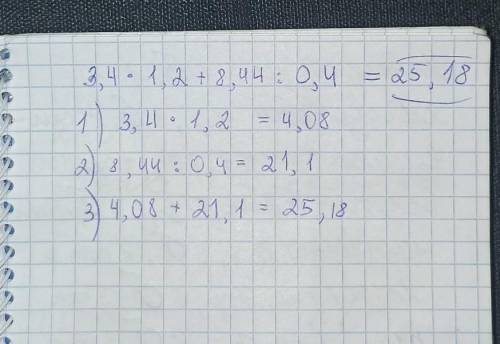 3,4 · 1,2 + 8,44 : 0,4 = 25,18
1) 3,4 · 1,2 = 4,08
2) 8,44 : 0,4 = 21,1
3) 4,08 + 21,1 = 25,18